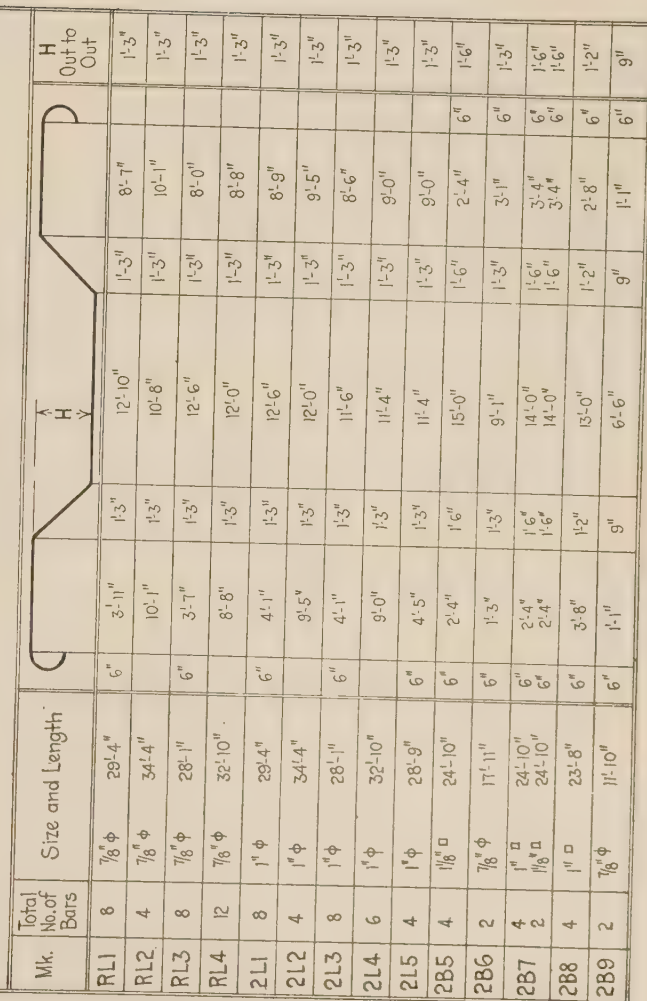 Mk. Total No. of Bars Size and Length H H Out to Out
RL1 8 7/8" ф 29'-4" 6" 3'-11" 1'-3" 12'-10" 1'-3" 8'-7" 1'-3"
RL2 4 7/8" ф 34'-4" 10'-1" 1'-3" 10'-8" 1'-3" 10'-1" 1'-3"
RL3 8 7/8" ф 28'-1" 6" 3'-7" 1'-3" 12'-6" 1'-3" 8'-0" 1'-3"
RL4 12 7/8" ф 32'-10" 8'-8" 1'-3" 12'-0" 1'-3" 8'-8" 1'-3"
2L1 8 1" ф 29'-4" 6" 4'-1" 1'-3" 12'-6" 1'-3" 8'-9" 1'-3"
2L2 4 1" ф 34'-4" 9'-5" 1'-3" 12'-0" 1'-3" 9'-5" 1'-3"
2L3 8 1" ф 28'-1" 6" 4'-1" 1'-3" 11'-6" 1'-3" 8'-6" 1'-3"
2L4 6 1" ф 32'-10" 9'-0" 1'-3" 11'-4" 1'-3" 9'-0" 1'-3"
2L5 4 1" ф 28'-9" 6" 4'-5" 1'-3" 11'-4" 1'-3" 9'-0" 1'-3"
2B5 4 1 1/8" □ 24'-10" 6" 2'-4" 1'-6" 15'-0" 1'-6" 2'-4" 6" 1'-6"
2B6 2 7/8" ф 17'-11" 6" 1'-3" 1'-3" 9'-1" 1'-3" 3'-1" 6" 1'-3"
2B7 4 1" □ 24'-10" 6" 2'-4" 1'-6" 14'-0" 1'-6" 3'-4" 6" 1'-6"
2 1 1/8" □ 24'-10" 6" 2'-4" 1'-6" 14'-0" 1'-6" 3'-4" 6" 1'-6"
2B8 4 1" □ 23'-8" 6" 3'-8" 1'-2" 13'-0" 1'-2" 2'-8" 6" 1'-2"
2B9 2 7/8" ф 11'-10" 6" 1'-1" 9" 6'-6" 9" 1'-1" 6" 9"